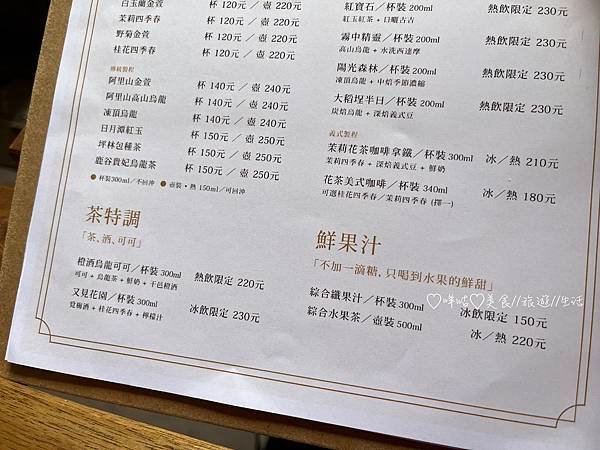 白玉蘭金萱 杯 120元 / 壺 220元
茉莉四季春 杯 120元 / 壺 220元
野菊金萱 杯 120元 / 壺 220元
桂花四季春 杯 120元 / 壺 220元
傳統製程
阿里山金萱 杯 140元 / 壺 240元
阿里山高山烏龍 杯 140元 / 壺 240元
凍頂烏龍 杯 140元 / 壺 240元
日月潭紅玉 杯 150元 / 壺 250元
坪林包種茶 杯 150元 / 壺 250元
鹿谷貴妃烏龍茶 杯 150元 / 壺 250元
● 杯裝300ml／不回沖 ● 壺裝・熱 150ml／可回沖
茶特調
「茶、酒、可可」
橙酒烏龍可可／杯裝300ml 熱飲限定 220元
可可 + 烏龍茶 + 鮮奶 + 干邑橙酒
又見花園／杯裝300ml 冰飲限定 230元
覓梅酒 + 桂花四季春 + 檸檬汁
紅寶石／杯裝 200ml 熱飲限定 230元
紅玉紅茶 + 日曬古吉
霧中精靈／杯裝200ml 熱飲限定 230元
高山烏龍 + 水洗西達摩
陽光森林／杯裝200ml 熱飲限定 230元
凍頂烏龍 + 中焙季節濃縮
大稻埕半日／杯裝200ml 熱飲限定 230元
炭焙烏龍 + 深焙義式豆
義式製程
茉莉花茶咖啡拿鐵／杯裝300ml 冰／熱 210元
茉莉四季春 + 深焙義式豆 + 鮮奶
花茶美式咖啡／杯裝 340ml 冰／熱 180元
可選桂花四季春／茉莉四季春 (擇一)
鮮果汁
「不加一滴糖，只喝到水果的鮮甜」
綜合纖果汁／杯裝300ml 冰飲限定 150元
綜合水果茶／壺裝500ml 冰／熱 220元
♡咪咕♡美食//旅遊//生活